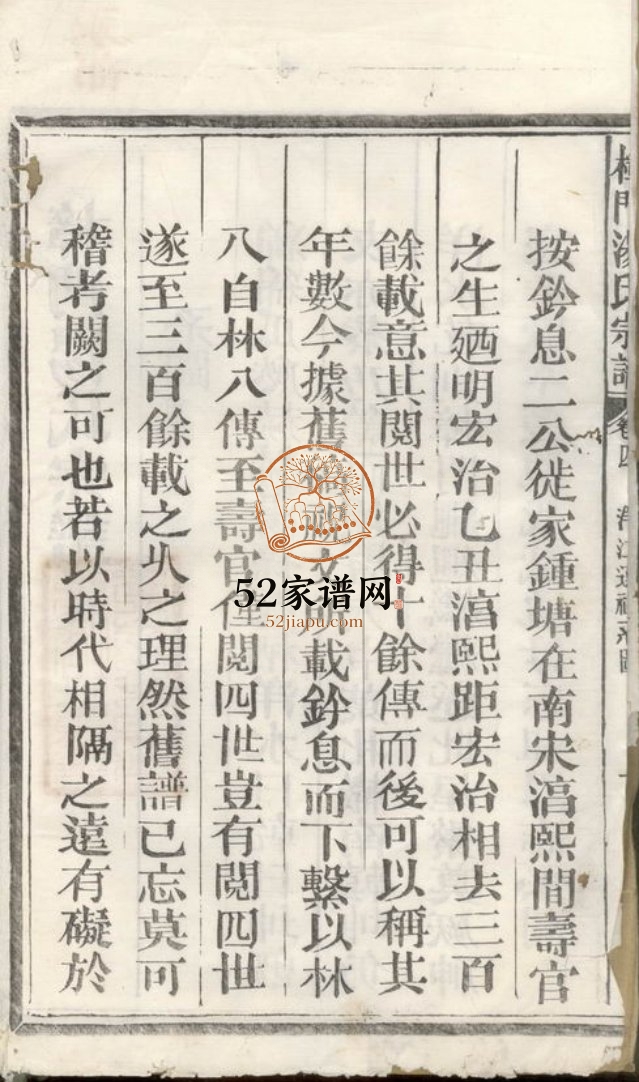 門湯氏宗譜 卷四
按鈐息二公徙家鍾塘在南宋湻熙間壽官
之生廼明宏治乙丑湻熙距宏治相去三百
餘載意其閱世必得十餘傳而後可以稱其
年數今據舊所載鈐息而下繫以林
八自林八傳至壽官僅閱四世豈有閱四世
遂至三百餘載之久之理然舊譜已忘莫可
稽考闕之可也若以時代相隔之遠有礙於
52家谱网
52jiapu.com